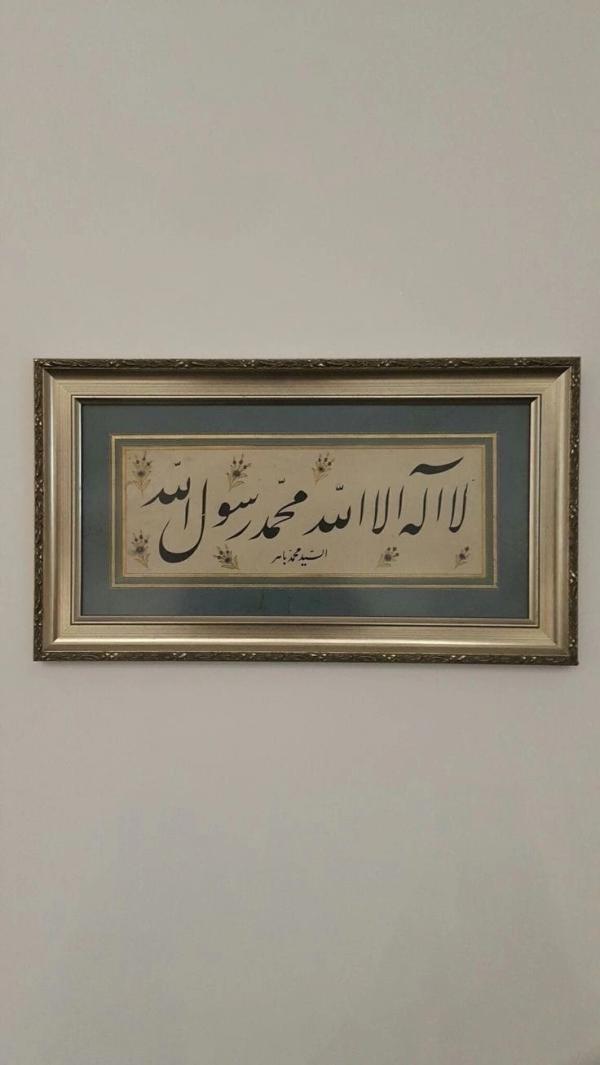 لا اله الا الله محمد رسول الله
السيد محمد باهر